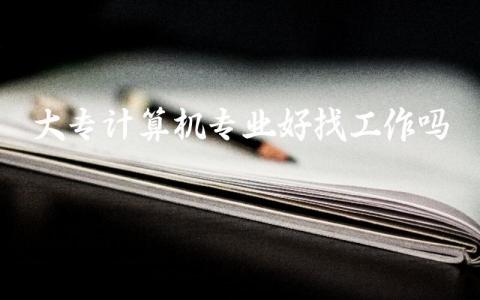 大专计算机专业好找工作吗